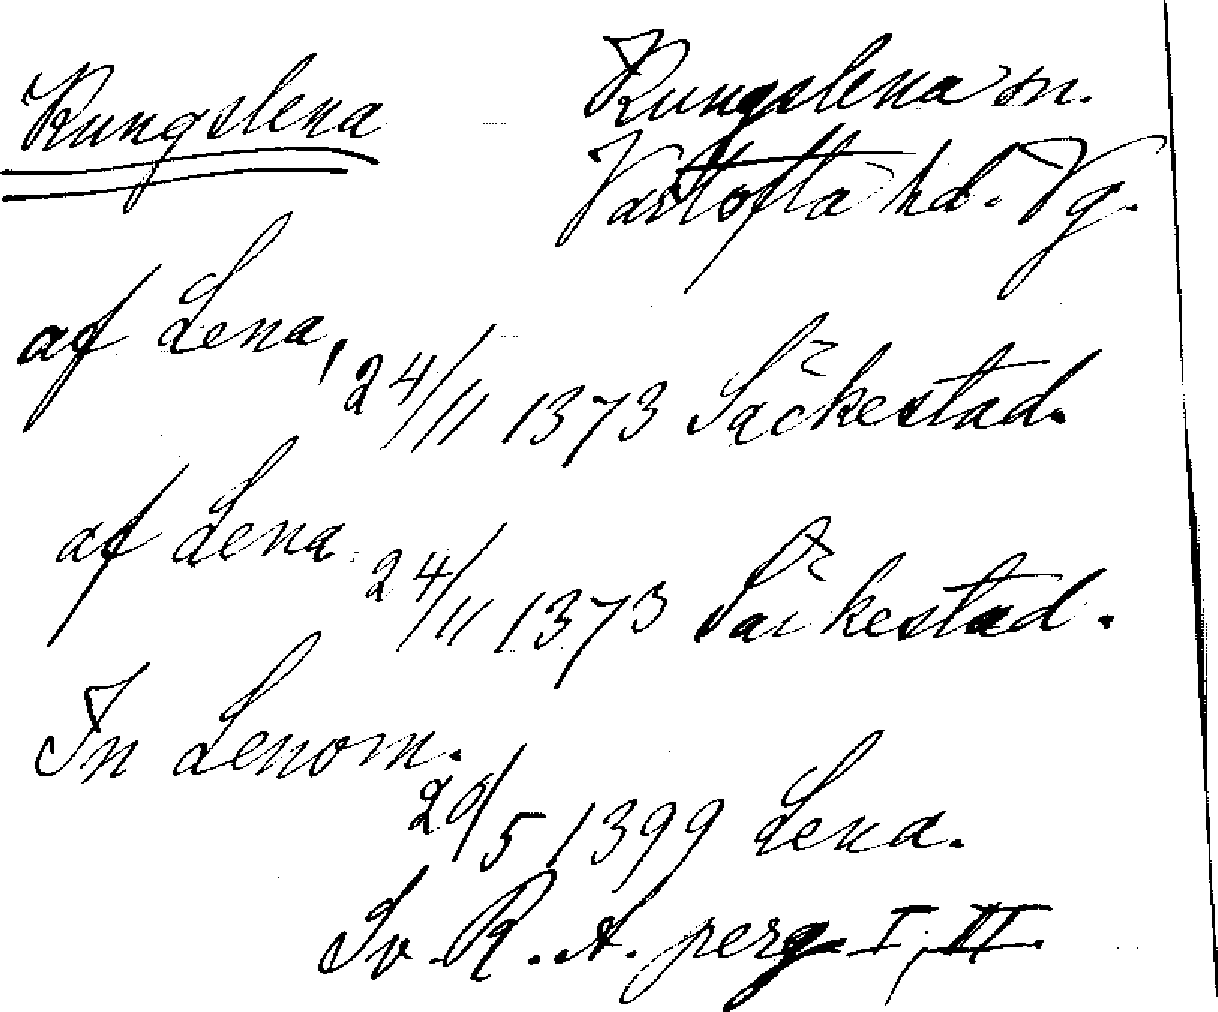 Kungslena Kungslena sn.
Vartofta hd. Vg.
af Lena, 24/11 1373 Säckestad.
af Lena. 24/11 1373 Säckestad.
In Lenom.
29/5 1399 Lena.
Sv. R. A. perg. I, II.